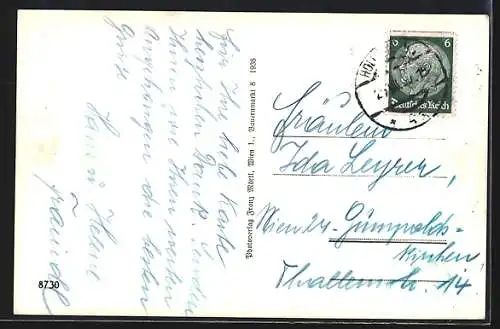 Für Ihre liebe Karte
herzlichen Dank. Senden
Ihnen sowie Ihren werten
Angehörigen die besten
Grüße
Hans u. Helene
8730
Photoverlag Franz Mörtl, Wien 1., Bauernmarkt 8 1938
6 6
Deutsches Reich
Fräulein
Ida Leyrer,
Wien 24. Gumpolds-
kirchen
Thallernstr. 14